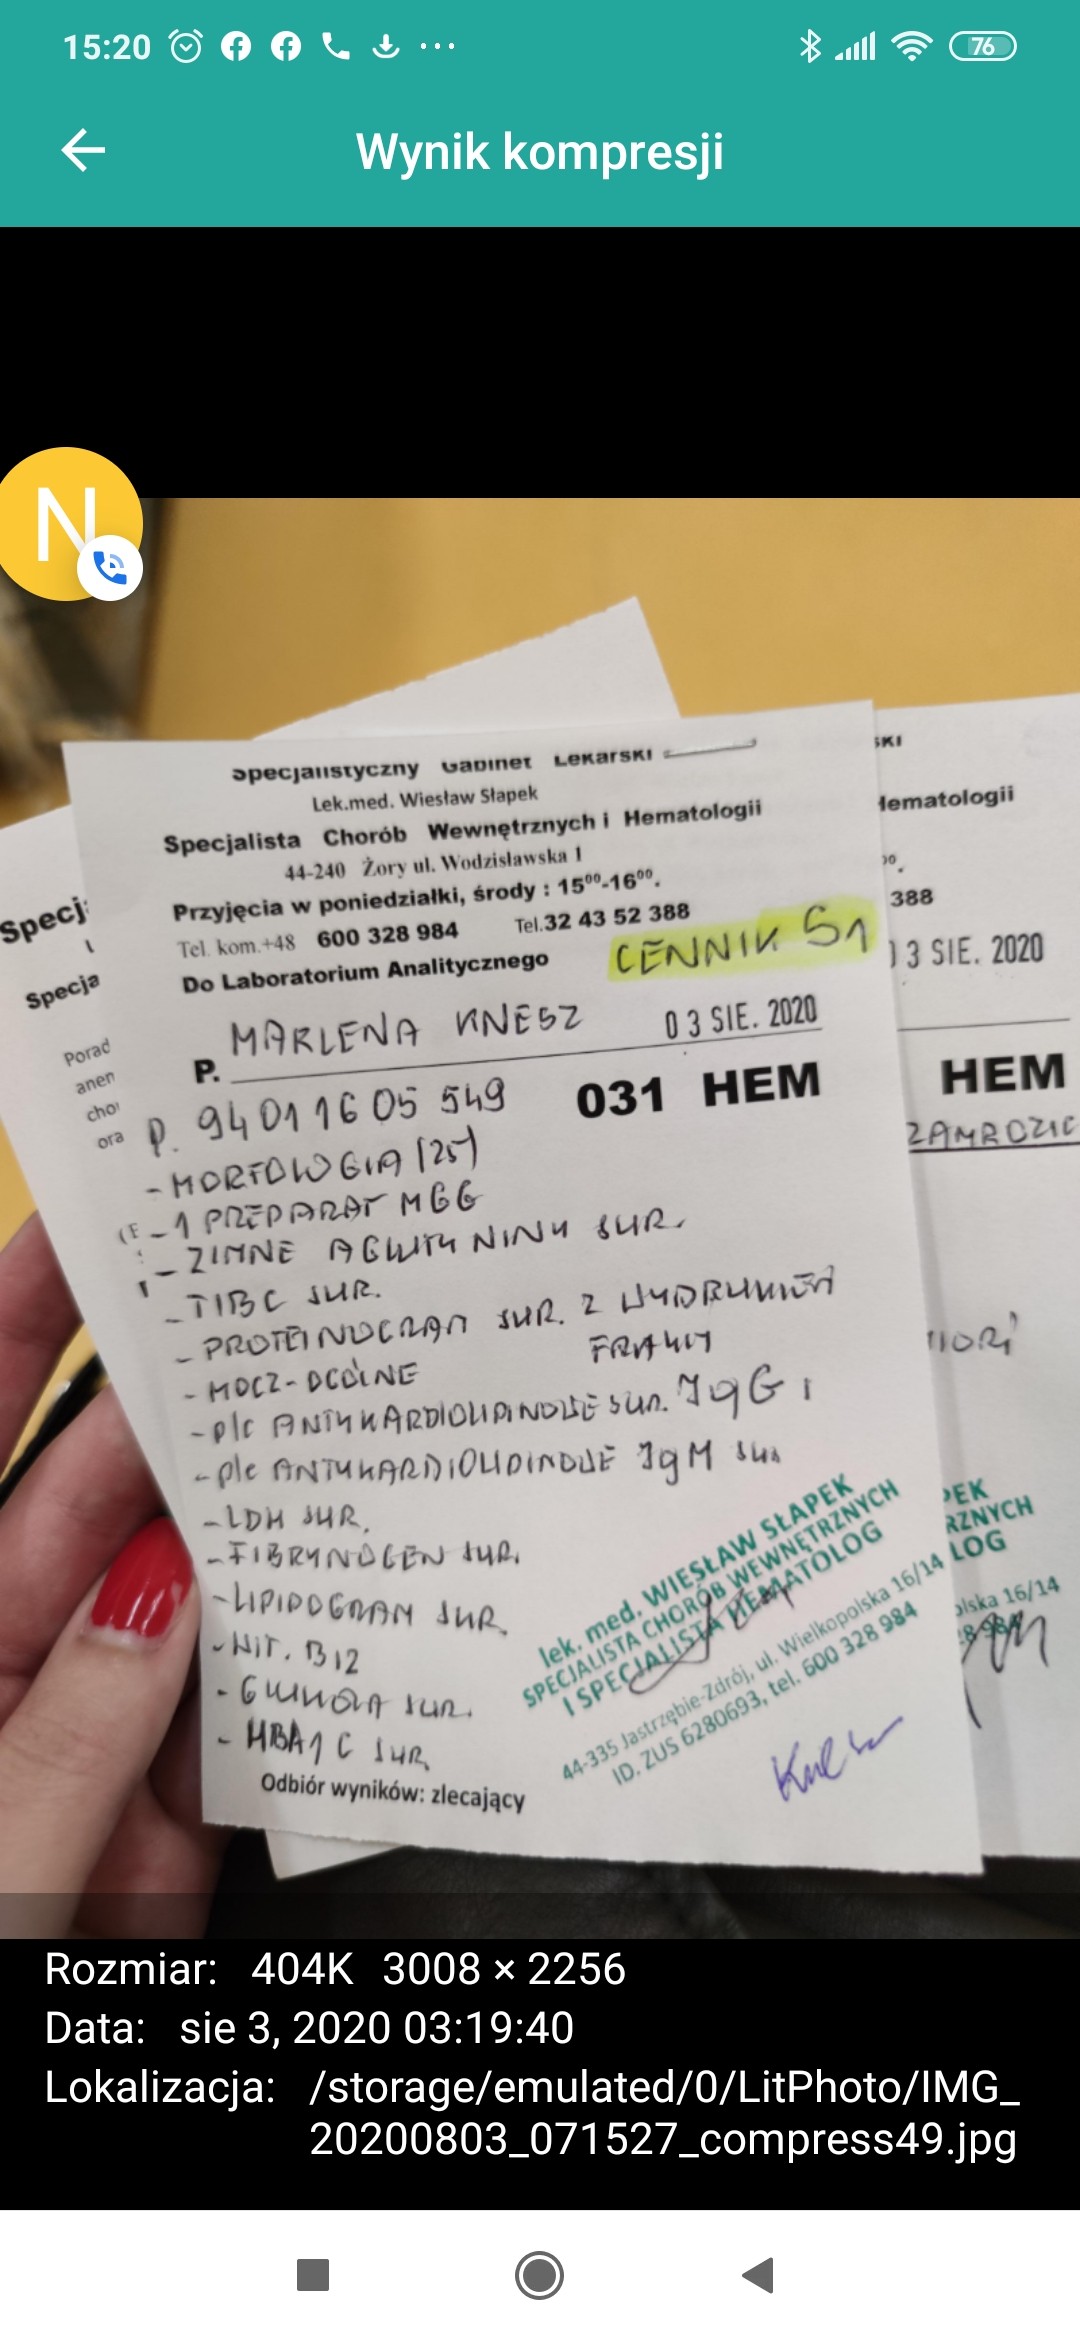 15:20
76
Wynik kompresji
N
Specjalistyczny Gabinet Lekarski
Lek.med. Wiesław Słapek
Specjalista Chorób Wewnętrznych i Hematologii
44-240 Żory ul. Wodzisławska 1
Przyjęcia w poniedziałki, środy : 15⁰⁰-16⁰⁰.
Tel. kom.+48 600 328 984 Tel.32 43 52 388
Do Laboratorium Analitycznego
CENNIK S1
P. MARLENA KNESZ 03 SIE. 2020
P. 94011605549 031 HEM
- MORFOLOGIA (25)
- 1 PREPARAT MGG
- ZIMNE AGLUTYNINY SUR.
- TIBC SUR.
- PROTEINOGRAM SUR. Z WYDRUKIEM
FRAKCJI
- MOCZ-OGÓLNE
- p/c ANTYKARDIOLIPINOWE SUR. IgG i
- p/c ANTYKARDIOLIPINOWE IgM SUR
- LDH SUR.
- FIBRYNOGEN SUR.
- LIPIDOGRAM SUR.
- WIT. B12
- GLUKOZA SUR.
- HBA1C SUR.
Odbiór wyników: zlecający
lek. med. WIESŁAW SŁAPEK
SPECJALISTA CHORÓB WEWNĘTRZNYCH
I SPECJALISTA HEMATOLOG
44-335 Jastrzębie-Zdrój, ul. Wielkopolska 16/14
ID. ZUS 6280693, tel. 600 328 984
SKI
Hematologii
388
03 SIE. 2020
HEM
Specja
Specja
Porad
anem
cho
ora
PEK
RZNYCH
LOG
olska 16/14
Rozmiar: 404K 3008 × 2256
Data: sie 3, 2020 03:19:40
Lokalizacja: /storage/emulated/0/LitPhoto/IMG_
20200803_071527_compress49.jpg